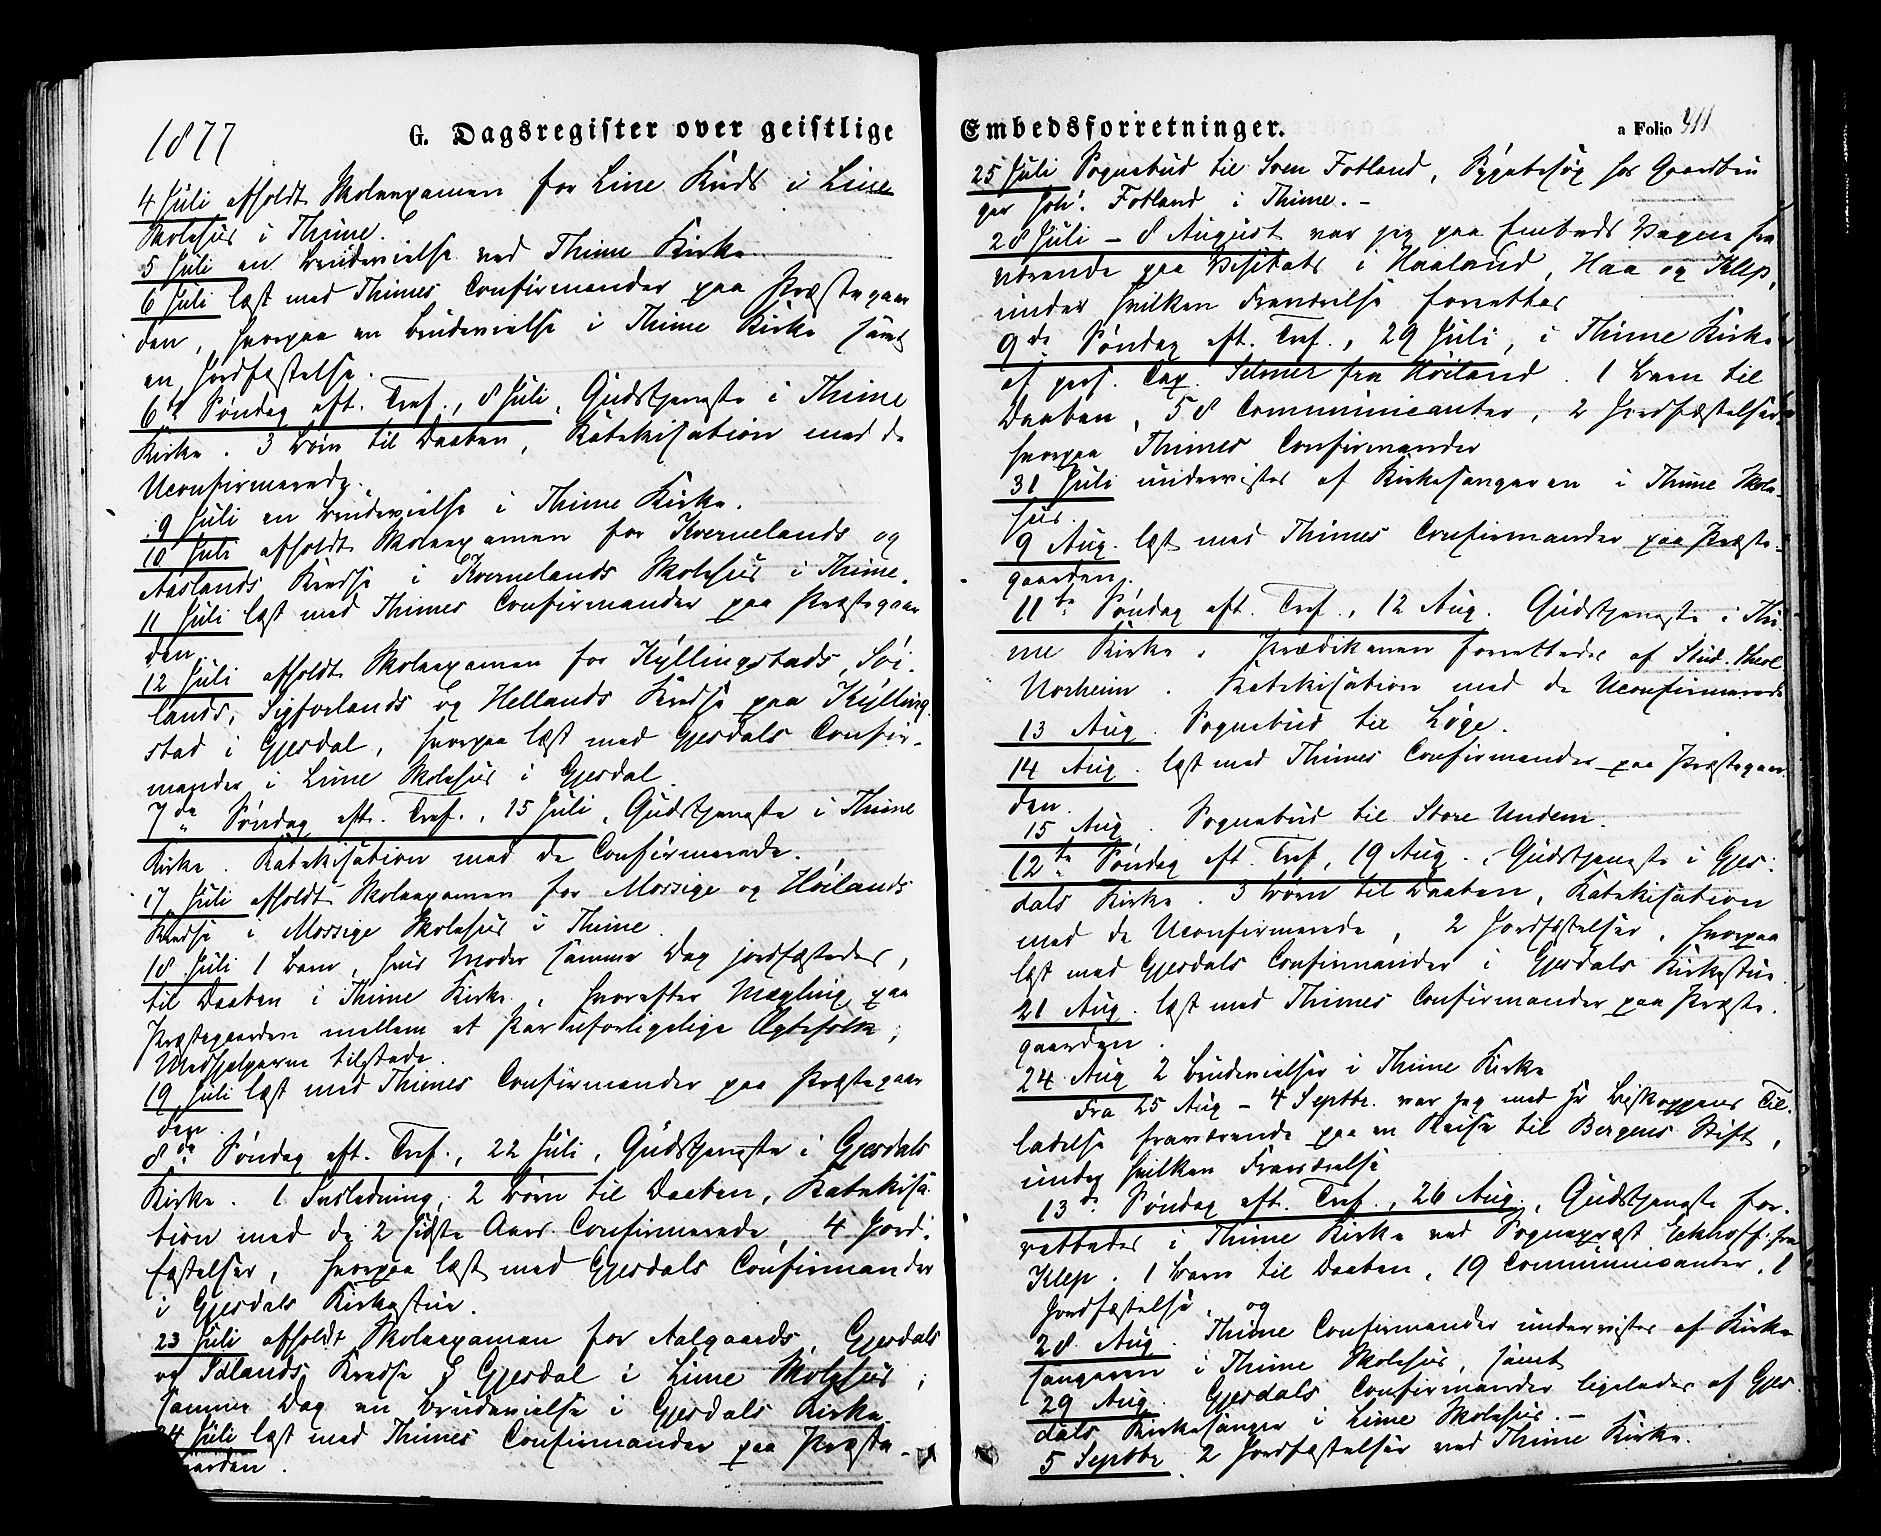 1877
G. Dagsregister over geistlige
4 Juli afholdt Skoleexamen for Line Kreds i Line
Skolehus i Thime.
5 Juli en Brudevielse ved Thime Kirke.
6 Juli læst med Thimes Confirmander paa Præstegaar
den, hvorpaa en Brudevielse i Thime Kirke samt
en Jordfæstelse.
6te Søndag eft. Tref., 8 Juli, Gudstjeneste i Thime
Kirke. 3 Børn til Daaben, Katekisation med de
Uconfirmerede.
9 Juli en Brudevielse i Thime Kirke.
10 Juli afholdt Skoleexamen for Kvernelands og
Aaslands Kredse i Kvernelands Skolehus i Thime.
11 Juli læst med Thimes Confirmander paa Præstegaar
den.
12 Juli afholdt Skoleexamen for Kyllingstads, Söi-
lands, Sigforlands og Hellands Kredse paa Kylling
stad i Gjesdal, hvorpaa læst med Gjesdals Confir-
mander i Lime Skolehus i Gjesdal.
7de Søndag eft. Tref., 15 Juli, Gudstjeneste i Thime
Kirke. Katekisation med de Confirmerede.
17 Juli afholdt Skoleexamen for Mossige og Höilands
Kredse i Mossige Skolehus i Thime.
18 Juli 1 Barn, hvis Moder samme Dag jordfæstedes,
til Daaben i Thime Kirke, hvorefter Mægling paa
Præstegaarden mellem et Par uforligelige Ægtefolk;
Medhjelperne tilstede.
19 Juli læst med Thimes Confirmander paa Præstegaar
den.
8de Søndag eft. Tref., 22 Juli, Gudstjeneste i Gjesdals
Kirke. 1 Indledning, 2 Børn til Daaben, Katekisa
tion med de 2 sidste Aars Confirmerede, 4 Jord-
fæstelser, hvorpaa læst med Gjesdals Confirmander
i Gjesdals Kirkestue.
23 Juli afholdt Skoleexamen for Aalgaards, Gjesdals
og Idlands Kredse i Gjesdal i Lime Skolehus;
samme Dag en Brudevielse i Gjesdals Kirke
24 Juli læst med Thimes Confirmander paa Præste-
gaarden.
Embedsforretninger.
a Folio 311
25 Juli Sognebud til Sven Fotland, Sygebesøg hos Gaardbru
ger Joh. Fotland i Thime. -
28 Juli - 8 August var jeg paa Embeds Vegne fra
værende paa Visitats i Haaland, Haa og Klep,
under hvilken Fraværelse forrettes
9de Søndag eft. Tref., 29 Juli, i Thime Kirke
af pers. Cap. Selmer fra Höiland. 1 Barn til
Daaben, 58 Communicanter, 2 Jordfæstelser,
hvorpaa Thimes Confirmander
31 Juli undervistes af Kirkesangeren i Thime Skole-
hus.
9 Aug. læst med Thimes Confirmander paa Præste-
gaarden.
11te Søndag eft. Tref., 12 Aug. Gudstjeneste i Thi-
me Kirke. Prædikenen forrettedes af Stud. theol
Norheim. Katekisation med de Uconfirmerede
13 Aug. Sognebud til Løge.
14 Aug. læst med Thimes Confirmander paa Præstegaar
den.
15 Aug. Sognebud til Store Undem.
12te Søndag eft. Tref, 19 Aug., Gudstjeneste i Gjes-
dals Kirke. 3 Børn til Daaben, Katekisation
med de Uconfirmerede, 2 Jordfæstelser, hvorpaa
læst med Gjesdals Confirmander i Gjesdals Kirkestue.
21 Aug. læst med Thimes Confirmander paa Præste-
gaarden.
24 Aug 2 Brudevielser i Thime Kirke
Fra 25 Aug - 4 Septbr. var jeg med Hr Biskoppens Til-
ladelse fraværende paa en Reise til Bergens Stift,
under hvilken Fraværelse
13de Søndag eft. Tref., 26 Aug., Gudstjeneste for-
rettedes i Thime Kirke ved Sognepræst Eckhoff fra
Klep. 1 Barn til Daaben, 19 Communicanter, 1
Jordfæstelse, og
28 Aug. Thime Confirmander undervistes af Kirke
sangeren i Thime Skolehus, samt
29 Aug. Gjesdals Confirmander ligeledes af Gjes
dals Kirkesanger i Lime Skolehus. -
5 Septbr. 2 Jordfæstelser ved Thime Kirke.